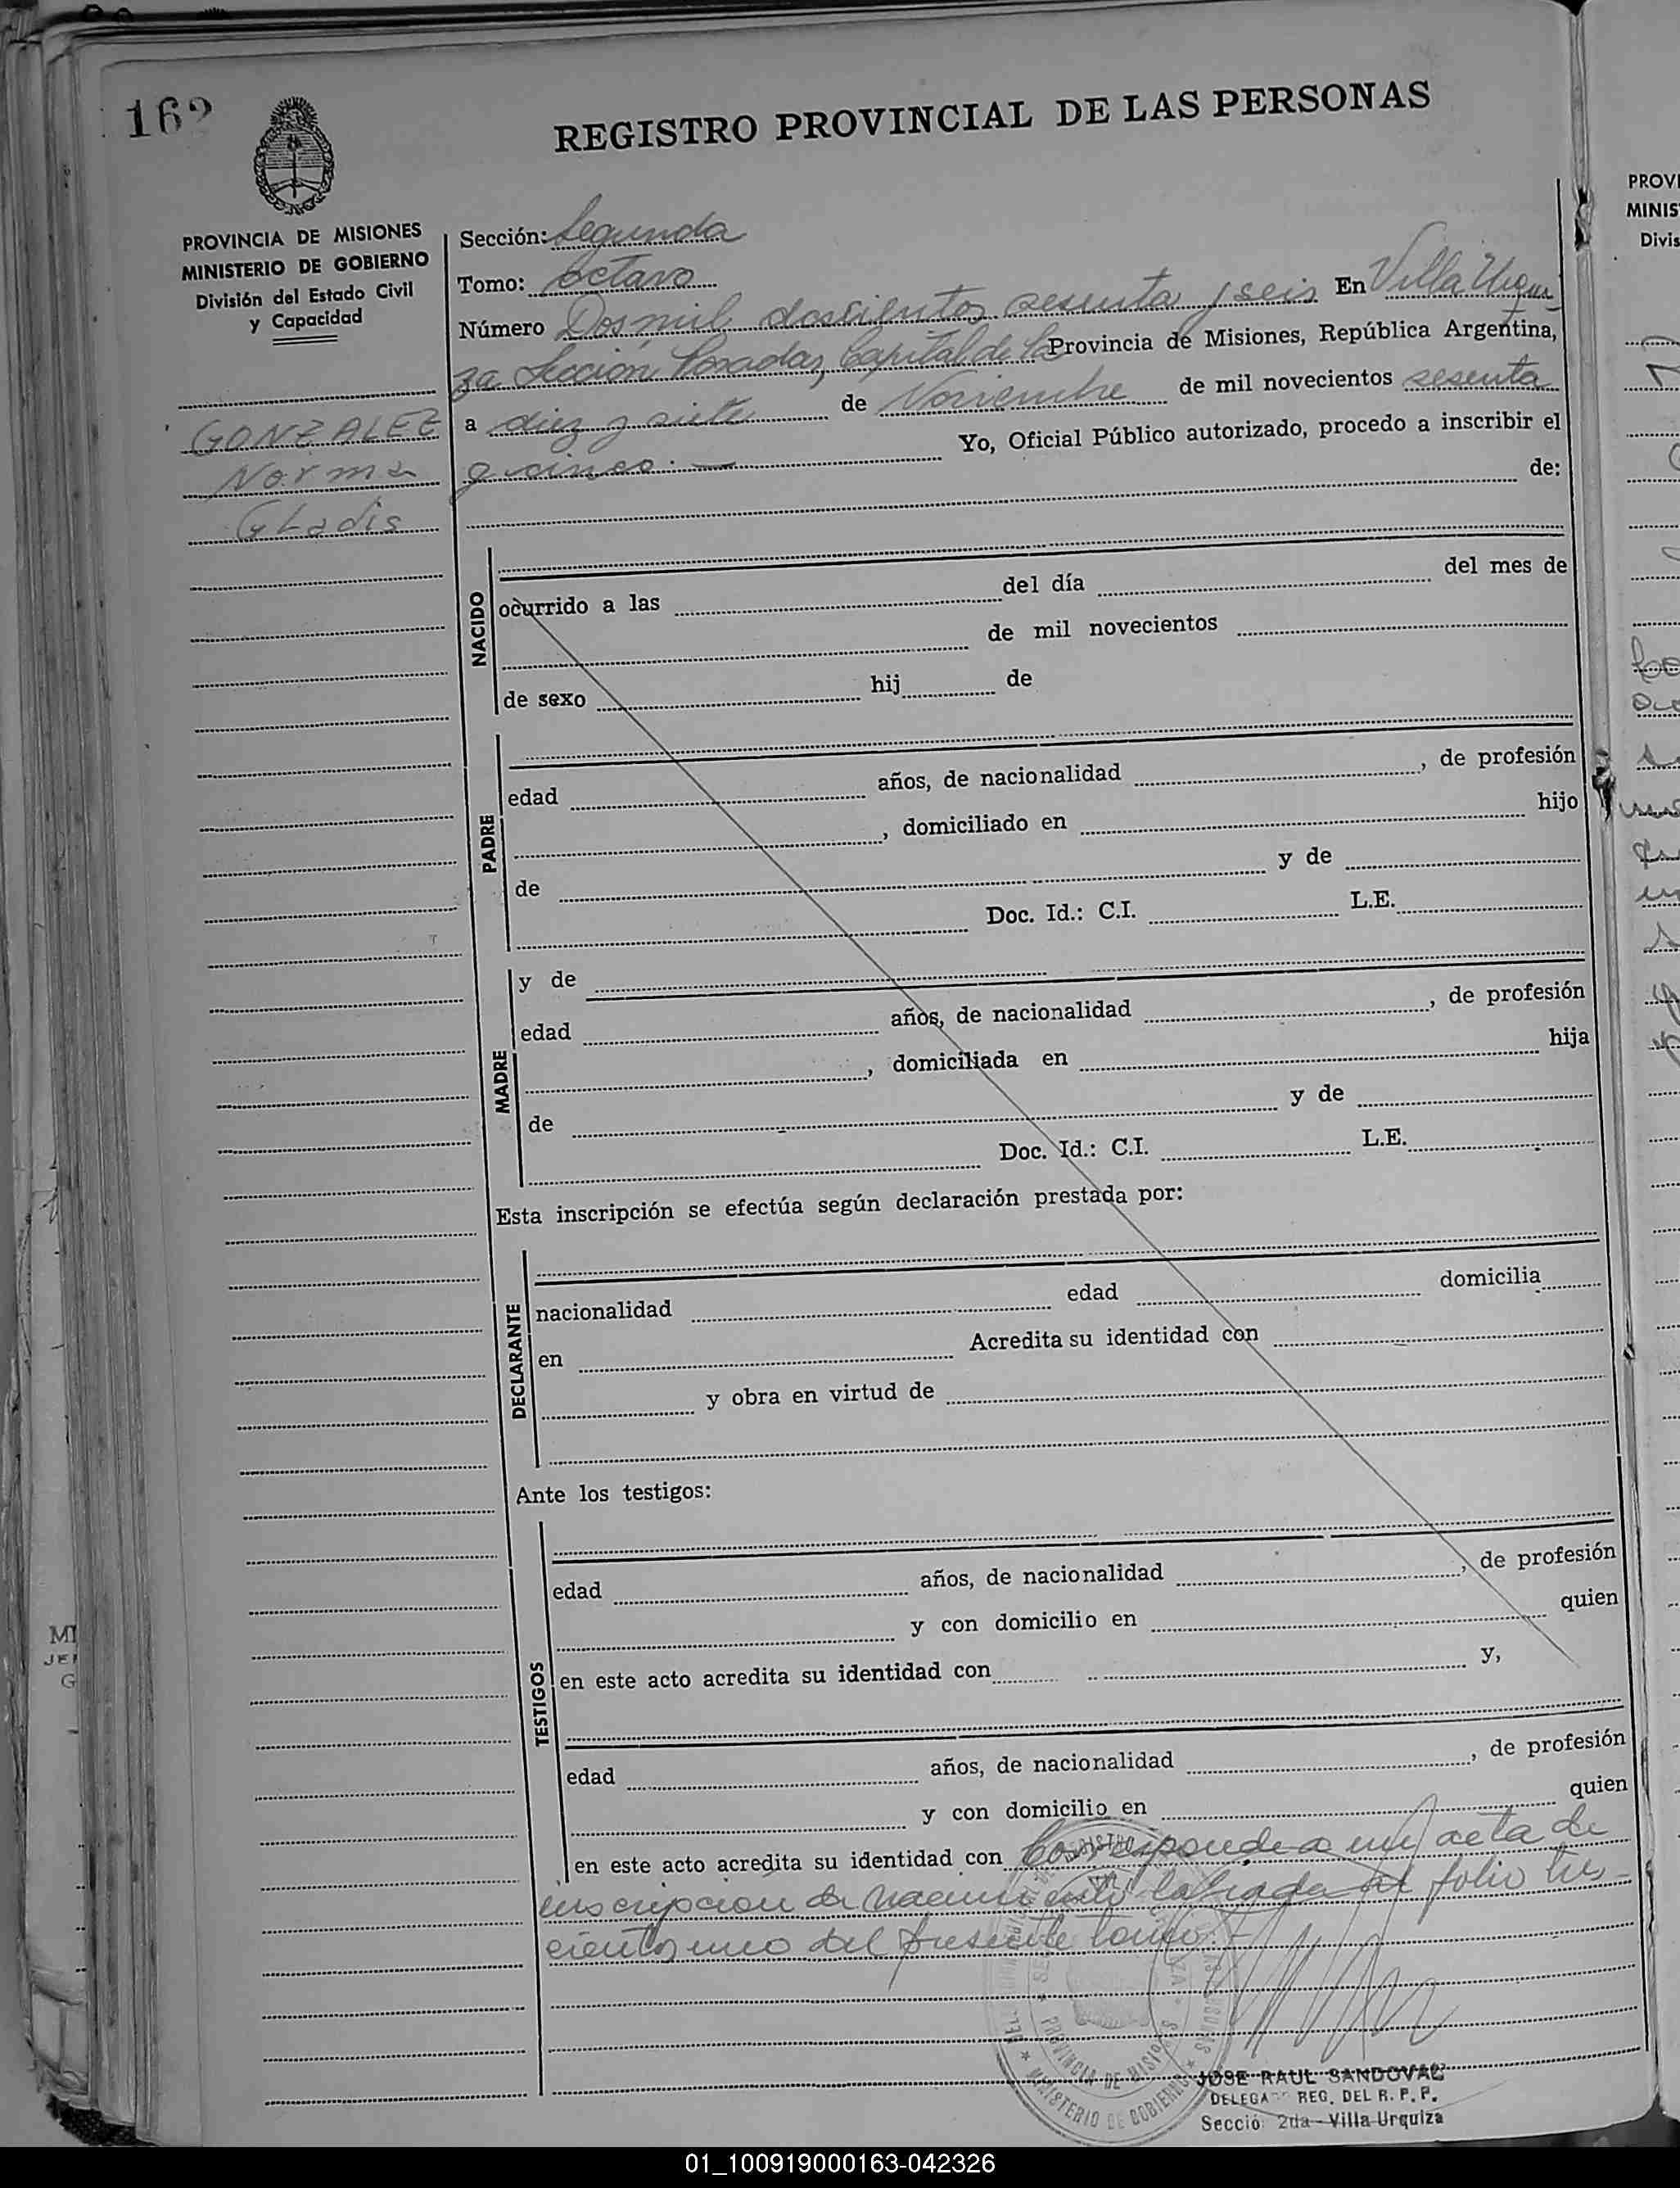 162
REGISTRO PROVINCIAL DE LAS PERSONAS
PROVINCIA DE MISIONES
MINISTERIO DE GOBIERNO
División del Estado Civil
y Capacidad
GONZALEZ
Norma
Gladis
Sección: Segunda
Tomo: octavo
Número Dos mil doscientos sesenta y seis En Villa Urqui
za Sección Posadas, Capital de la Provincia de Misiones, República Argentina,
a diez y siete de Noviembre de mil novecientos sesenta
y cinco.— Yo, Oficial Público autorizado, procedo a inscribir el
de:
NACIDO
ocurrido a las del día del mes de
de mil novecientos
de sexo hij de
PADRE
edad años, de nacionalidad , de profesión
, domiciliado en hijo
de y de
Doc. Id.: C.I. L.E.
MADRE
y de
edad años, de nacionalidad , de profesión
, domiciliada en hija
de y de
Doc. Id.: C.I. L.E.
Esta inscripción se efectúa según declaración prestada por:
DECLARANTE
nacionalidad edad domicilia
en Acredita su identidad con
y obra en virtud de
Ante los testigos:
TESTIGOS
edad años, de nacionalidad , de profesión
y con domicilio en quien
en este acto acredita su identidad con y,
edad años, de nacionalidad , de profesión
y con domicilio en quien
en este acto acredita su identidad con Corresponde a un acta de
inscripcion de nacimiento labrada al folio tres
cientos uno del presente tomo.-
PROVINCIA DE MISIONES
MINISTERIO DE GOBIERNO
JOSE RAUL SANDOVAL
DELEGADO REG. DEL R. P. P.
Secció 2da - Villa Urquiza
PROVI
MINIS
Divis
01_100919000163-042326